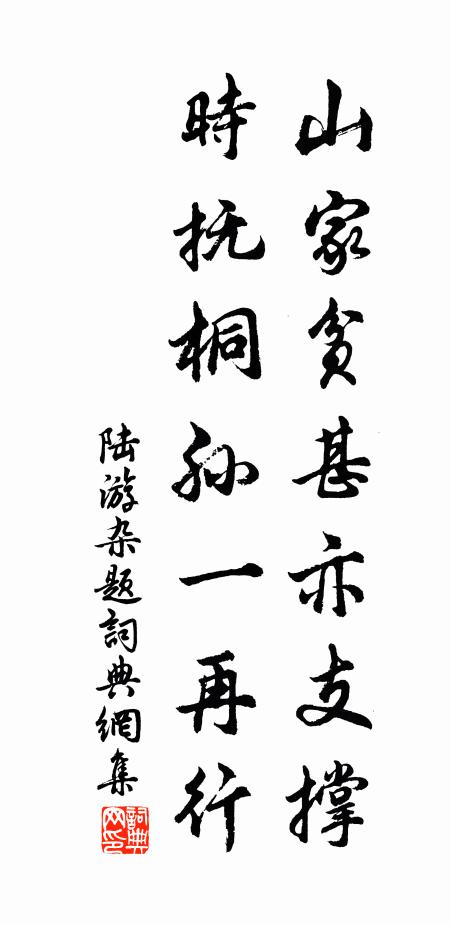 山家贫甚亦支撑
時抚桐孙一再行
陆游杂题詞典網集
詞典
网印